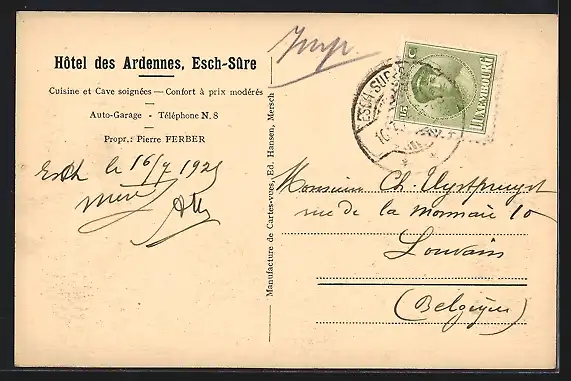 Hôtel des Ardennes, Esch-Sûre
Cuisine et Cave soignées — Confort à prix modérés
Auto-Garage - Téléphone N. 8
Propr.: Pierre FERBER
Esch le 16/7 1925
Manufacture de Cartes-vues, Ed. Hansen, Mersch
LUXEMBOURG
ESCH-SUR
Monsieur Ch.
rue de la monnaie 10
Louvain
(Belgique)